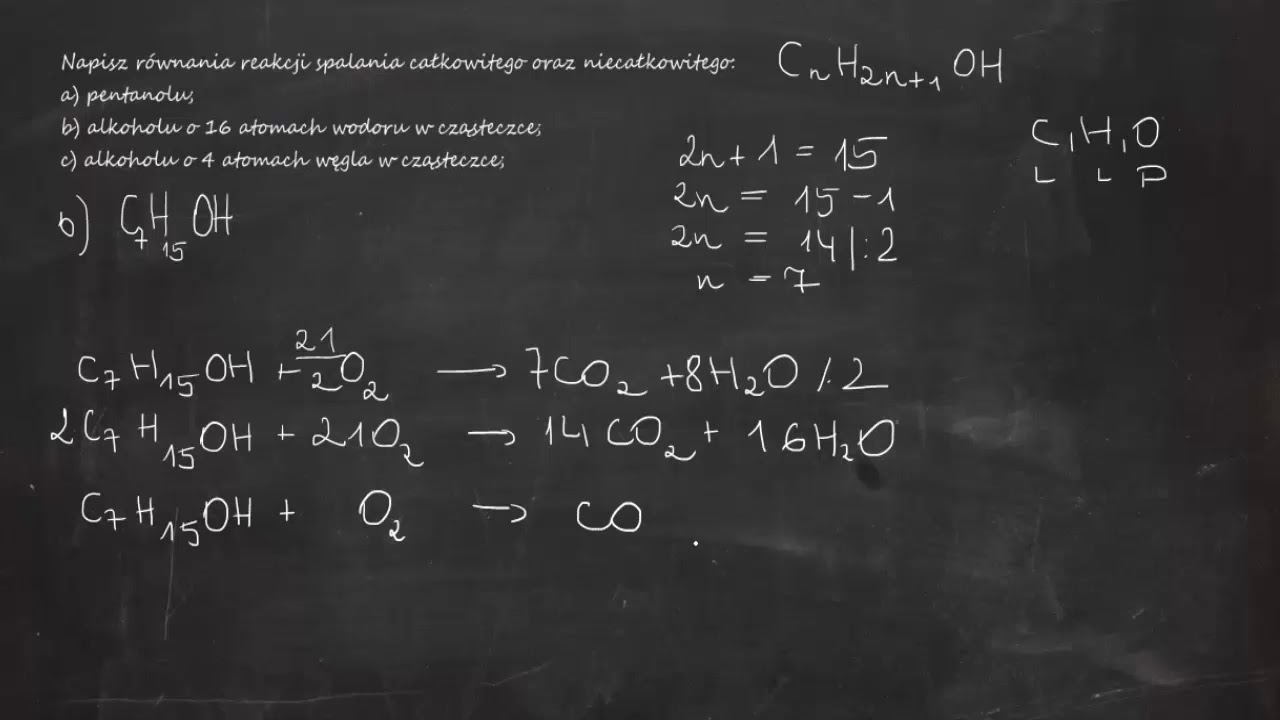 Napisz równania reakcji spalania całkowitego oraz niecałkowitego:
a) pentanolu;
b) alkoholu o 16 atomach wodoru w cząsteczce;
c) alkoholu o 4 atomach węgla w cząsteczce;
CnH2n+1OH
C, H, O
L L P
2n + 1 = 15
2n = 15 - 1
2n = 14 |:2
n = 7
b) C7H15OH
C7H15OH + 21/2 O2 → 7CO2 + 8H2O /·2
2C7H15OH + 21O2 → 14CO2 + 16H2O
C7H15OH + O2 → CO